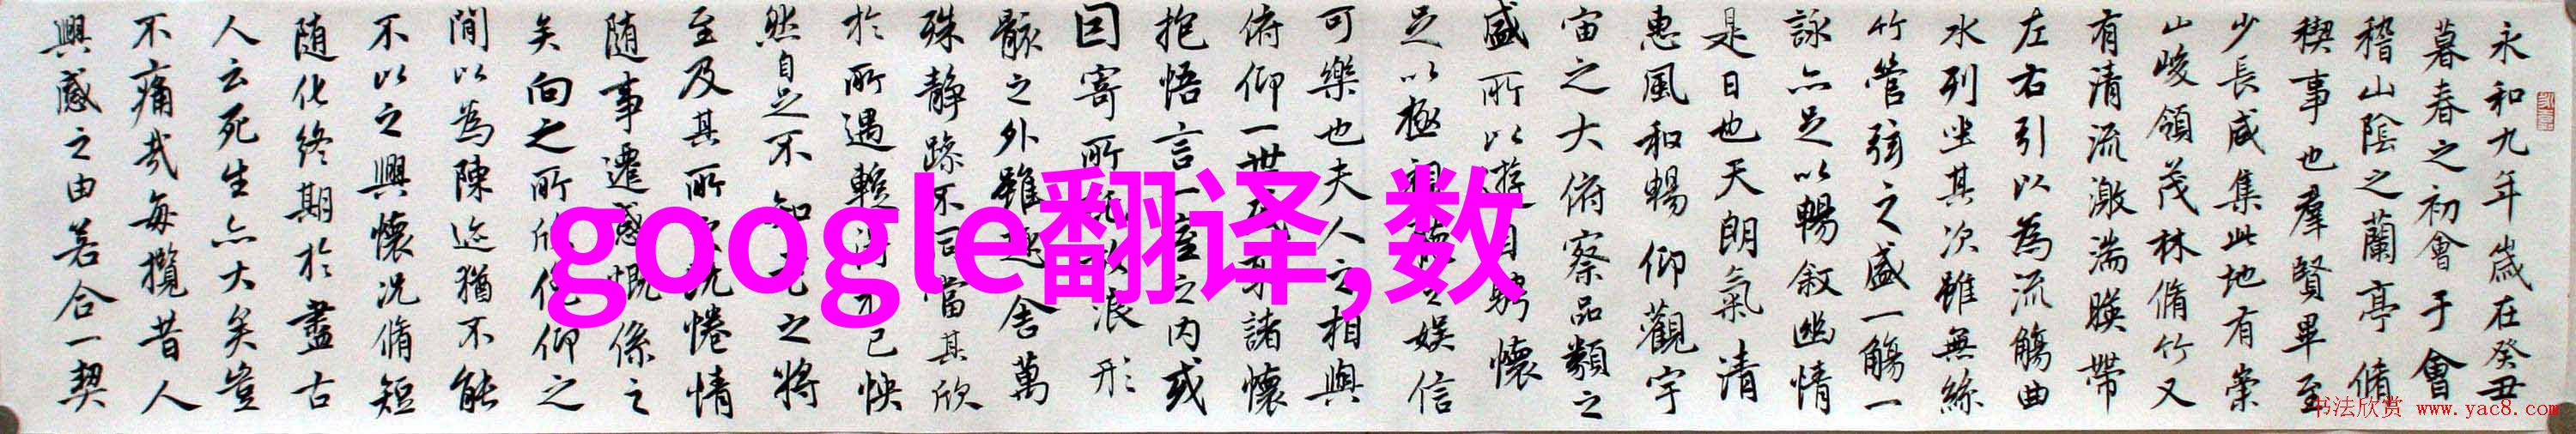 永和九年歲在癸丑
暮春之初會于會
稽山陰之蘭亭脩
稧事也羣賢畢至
少長咸集此地有崇
山峻領茂林脩竹又
有清流激湍暎帶
左右引以為流觴曲
水列坐其次雖無絲
竹管弦之盛一觴一
詠亦足以暢敘幽情
是日也天朗氣清
惠風和暢仰觀宇
宙之大俯察品類之
盛所以遊目騁懷
足以極視之娛信
可樂也夫人之相與
俯仰一世諸懷
抱悟言一室之内或
因寄所浪形
骸之外雖趣舍萬
殊静躁不同當其欣
於所遇蹔得己怏
然自足不知老之将
至及其所之既惓情
随事遷感慨係之
矣向之所欣俛仰之
閒以為陳迹猶不能
不以之興懷况脩短
随化終期於盡古
人云死生亦大矣豈
不痛哉每攬昔人
興感之由若合一契
google翻译,数
书法欣赏 www.yac8.com